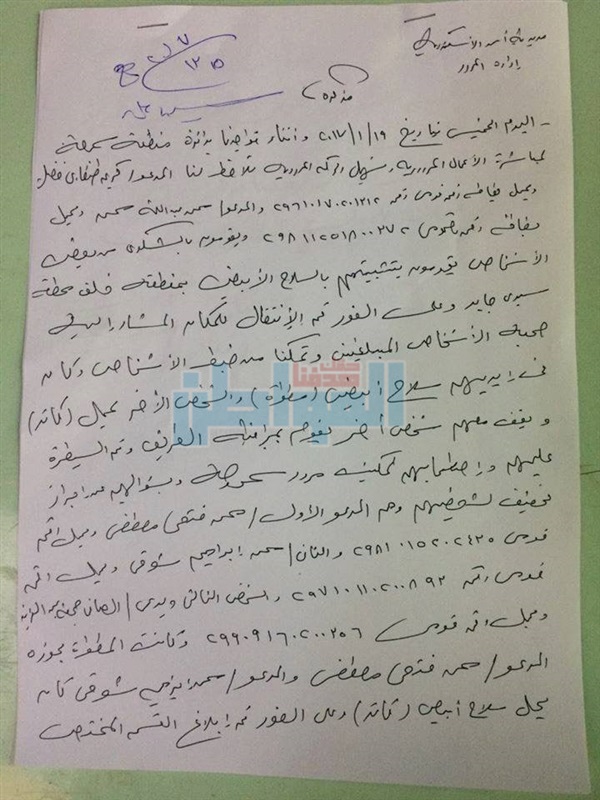 مديرية أمن الاسكندرية
إدارة المرور
مذكرة
- اليوم الخميس بتاريخ ١٩/١/٢٠١٧ وأثناء تواجدنا بدائرة منطقة سموحة
لمباشرة الأعمال المرورية وتسهيل الحركة المرورية تلاحظ لنا المدعو/ كريم فضل
ويحمل بطاقة رقم قومى رقم والمدعو/ محمد عبدالله محمد ويحمل
بطاقة رقم قومى ٢٩٨١١٢٥١٨٠٠٢٧٢ ويقومون بالشكوى من بعض
الأشخاص يقومون بتثبيتهم بالسلاح الأبيض بمنطقة خلف محطة
سيدى جابر وعلى الفور تم الإنتقال للمكان المشار اليه
صحبة الأشخاص المبلغين وتمكنا من ضبط الأشخاص وكان
فى إيديهم سلاح أبيض (مطواة) والشخص الأخر يحمل (كاتر)
ويقف معهم شخص أخر يقوم بمراقبة الطريق وتم السيطرة
عليهم وإصطحابهم لمكتب مرور سموحة وبسؤالهم عن إبراز
تحقيق لشخصيتهم وهم المدعو الاول/ محمد فتحى مصطفى ويحمل رقم
قومى ٢٩٨١٠١٥٢٠٢٤٣٥ والثانى/ محمد إبراهيم شوقى ويحمل رقم
قومى رقم ٢٩٧١٠١١٠٢٠٠٨٩٢ والشخص الثالث ويدعى/
ويحمل رقم قومى ٢٩٩٠٩١٦٠٢٠٠٢٥٦ وكانت المطواة بحوزة
المدعو/ محمد فتحى مصطفى والمدعو/ محمد ابراهيم شوقى كان
يحمل سلاح أبيض (كاتر) وعلى الفور تم إبلاغ القسم المختص